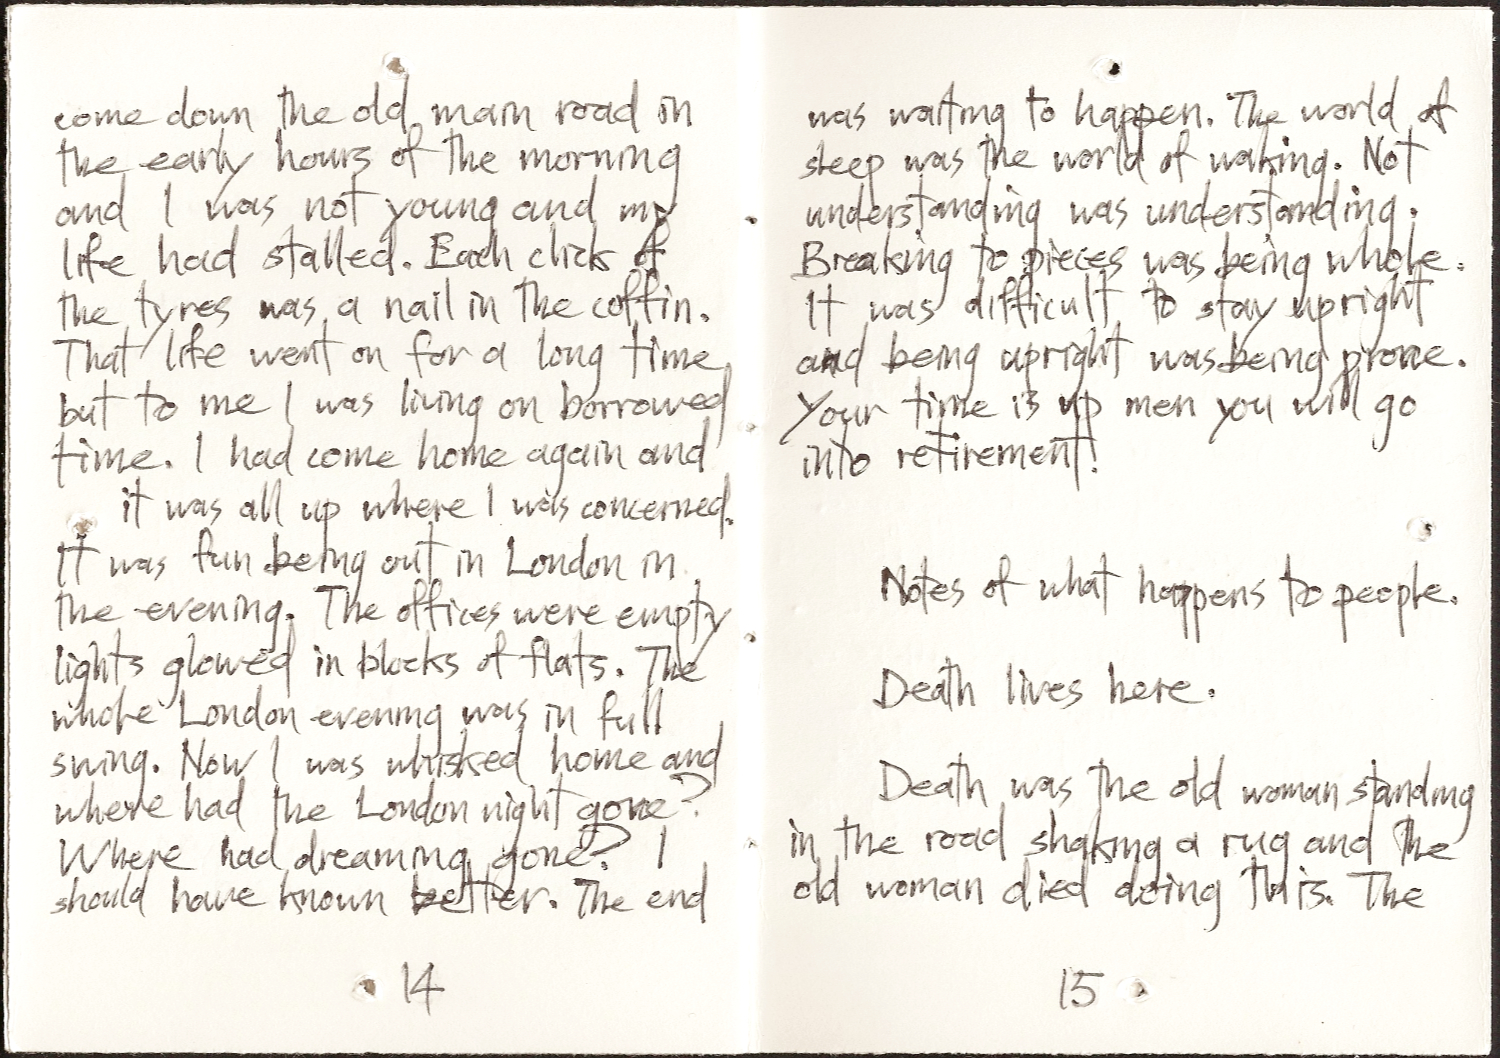 come down the old main road in
the early hours of the morning
and I was not young and my
life had stalled. Each click of
the tyres was a nail in the coffin.
That life went on for a long time
but to me I was living on borrowed
time. I had come home again and
it was all up where I was concerned.
It was fun being out in London in
the evening. The offices were empty
lights glowed in blocks of flats. The
whole London evening was in full
swing. Now I was whisked home and
where had the London night gone?
Where had dreaming gone? I
should have known better. The end
14
was waiting to happen. The world of
sleep was the world of waking. Not
understanding was understanding.
Breaking to pieces was being whole.
It was difficult to stay upright
and being upright was being prone.
Your time is up men you will go
into retirement!
Notes of what happens to people.
Death lives here.
Death was the old woman standing
in the road shaking a rug and the
old woman died doing this. The
15